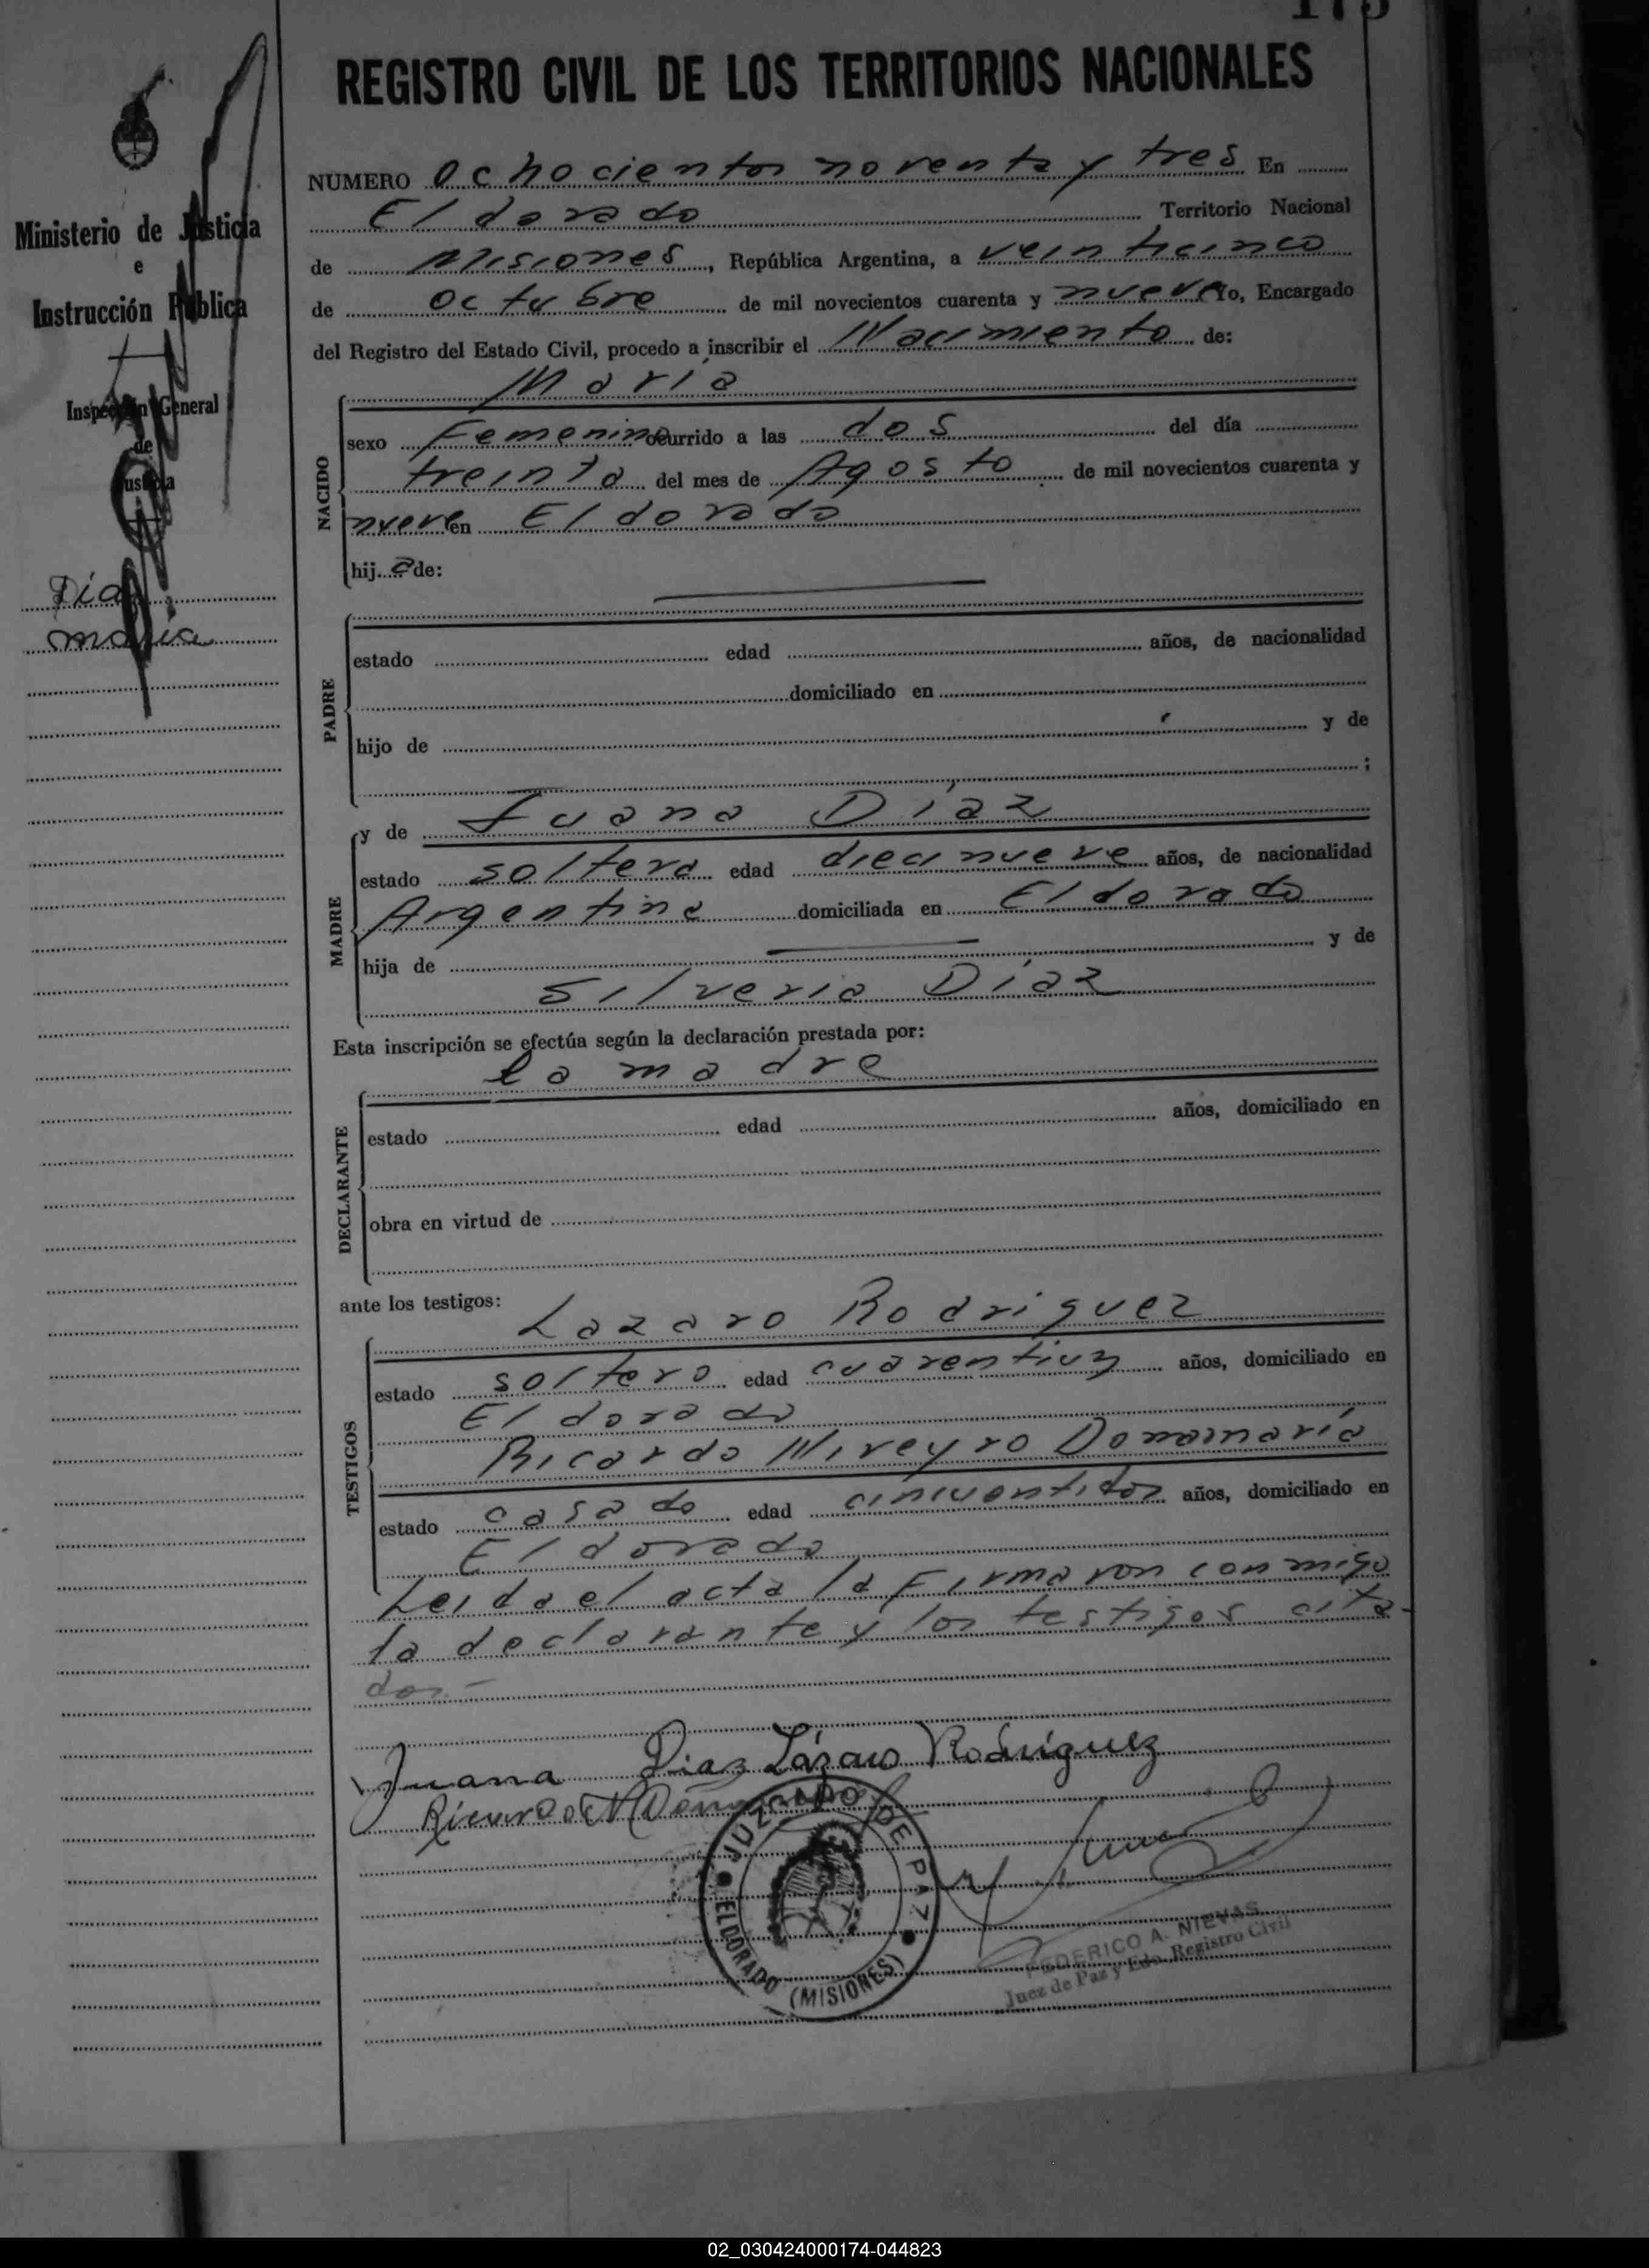 175
REGISTRO CIVIL DE LOS TERRITORIOS NACIONALES
Ministerio de Justicia
e
Instrucción Pública
Inspección General
de
Justicia
Díaz
maria
NUMERO ochocientos noventa y tres En
Eldorado Territorio Nacional
de Misiones, República Argentina, a veinticinco
de octubre de mil novecientos cuarenta y nueve Yo, Encargado
del Registro del Estado Civil, procedo a inscribir el Nacimiento de:
Maria
NACIDO
sexo Femenino ocurrido a las dos del día
treinta del mes de Agosto de mil novecientos cuarenta y
nueve en Eldorado
hija de:
PADRE
estado edad años, de nacionalidad
domiciliado en
hijo de y de
;
MADRE
y de Juana Díaz
estado soltera edad diecinueve años, de nacionalidad
Argentina domiciliada en Eldorado
hija de y de
Silveria Díaz
Esta inscripción se efectúa según la declaración prestada por:
la madre
DECLARANTE
estado edad años, domiciliado en
obra en virtud de
ante los testigos:
Lazaro Rodriguez
TESTIGOS
estado soltero edad cuarentiun años, domiciliado en
Eldorado
Ricardo Domainaría
estado casado edad cincuentidos años, domiciliado en
Eldorado
Leida el acta la Firmaron conmigo
la declarante y los testigos cita-
dos.-
Juana Diaz Lázaro Rodríguez
JUZGADO DE PAZ
ELDORADO (MISIONES)
FEDERICO A. NIEVAS
Juez de Paz y Edo. Registro Civil
02_030424000174-044823